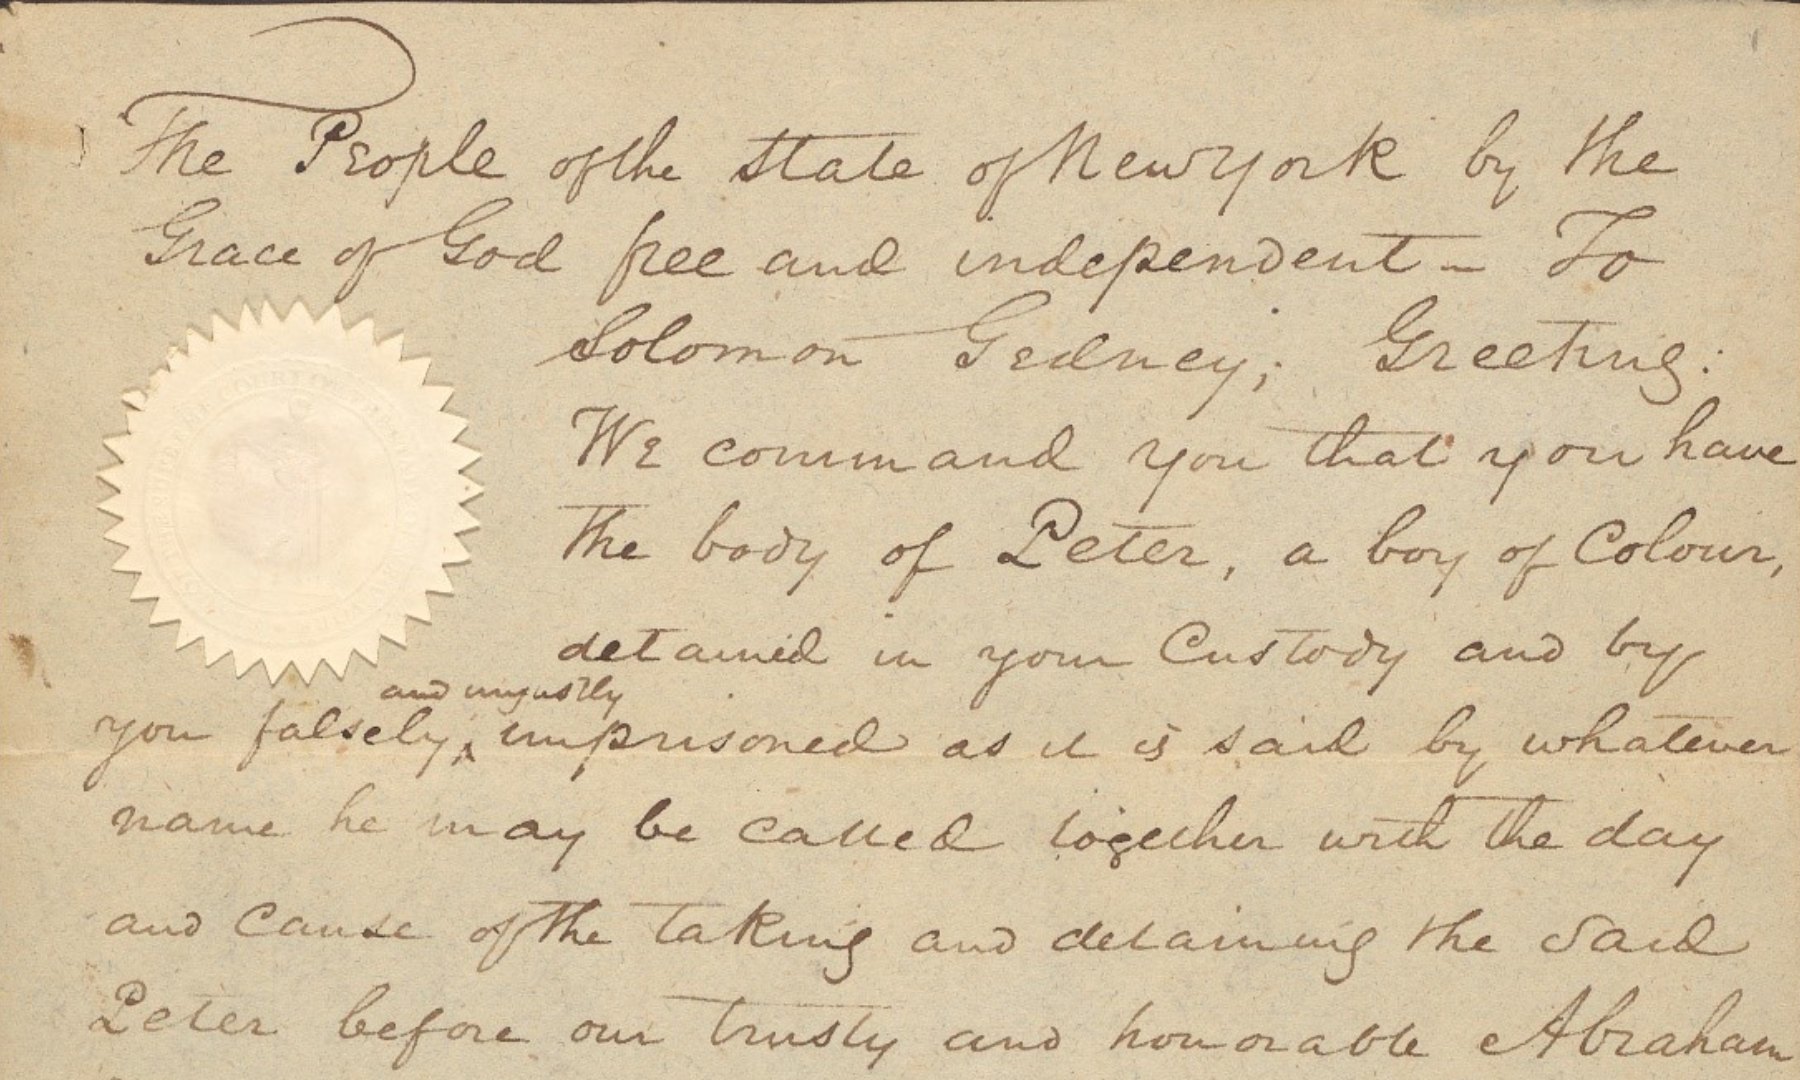 The People of the state of New York by the
Grace of God free and independent - To
Solomon Gedney; Greeting:
We command you that you have
the body of Peter, a boy of Colour,
detained in your Custody and by
and unjustly
you falsely, ^ imprisoned as it is said by whatever
name he may be called together with the day
and cause of the taking and detaining the said
Peter before our trusty and honorable Abraham